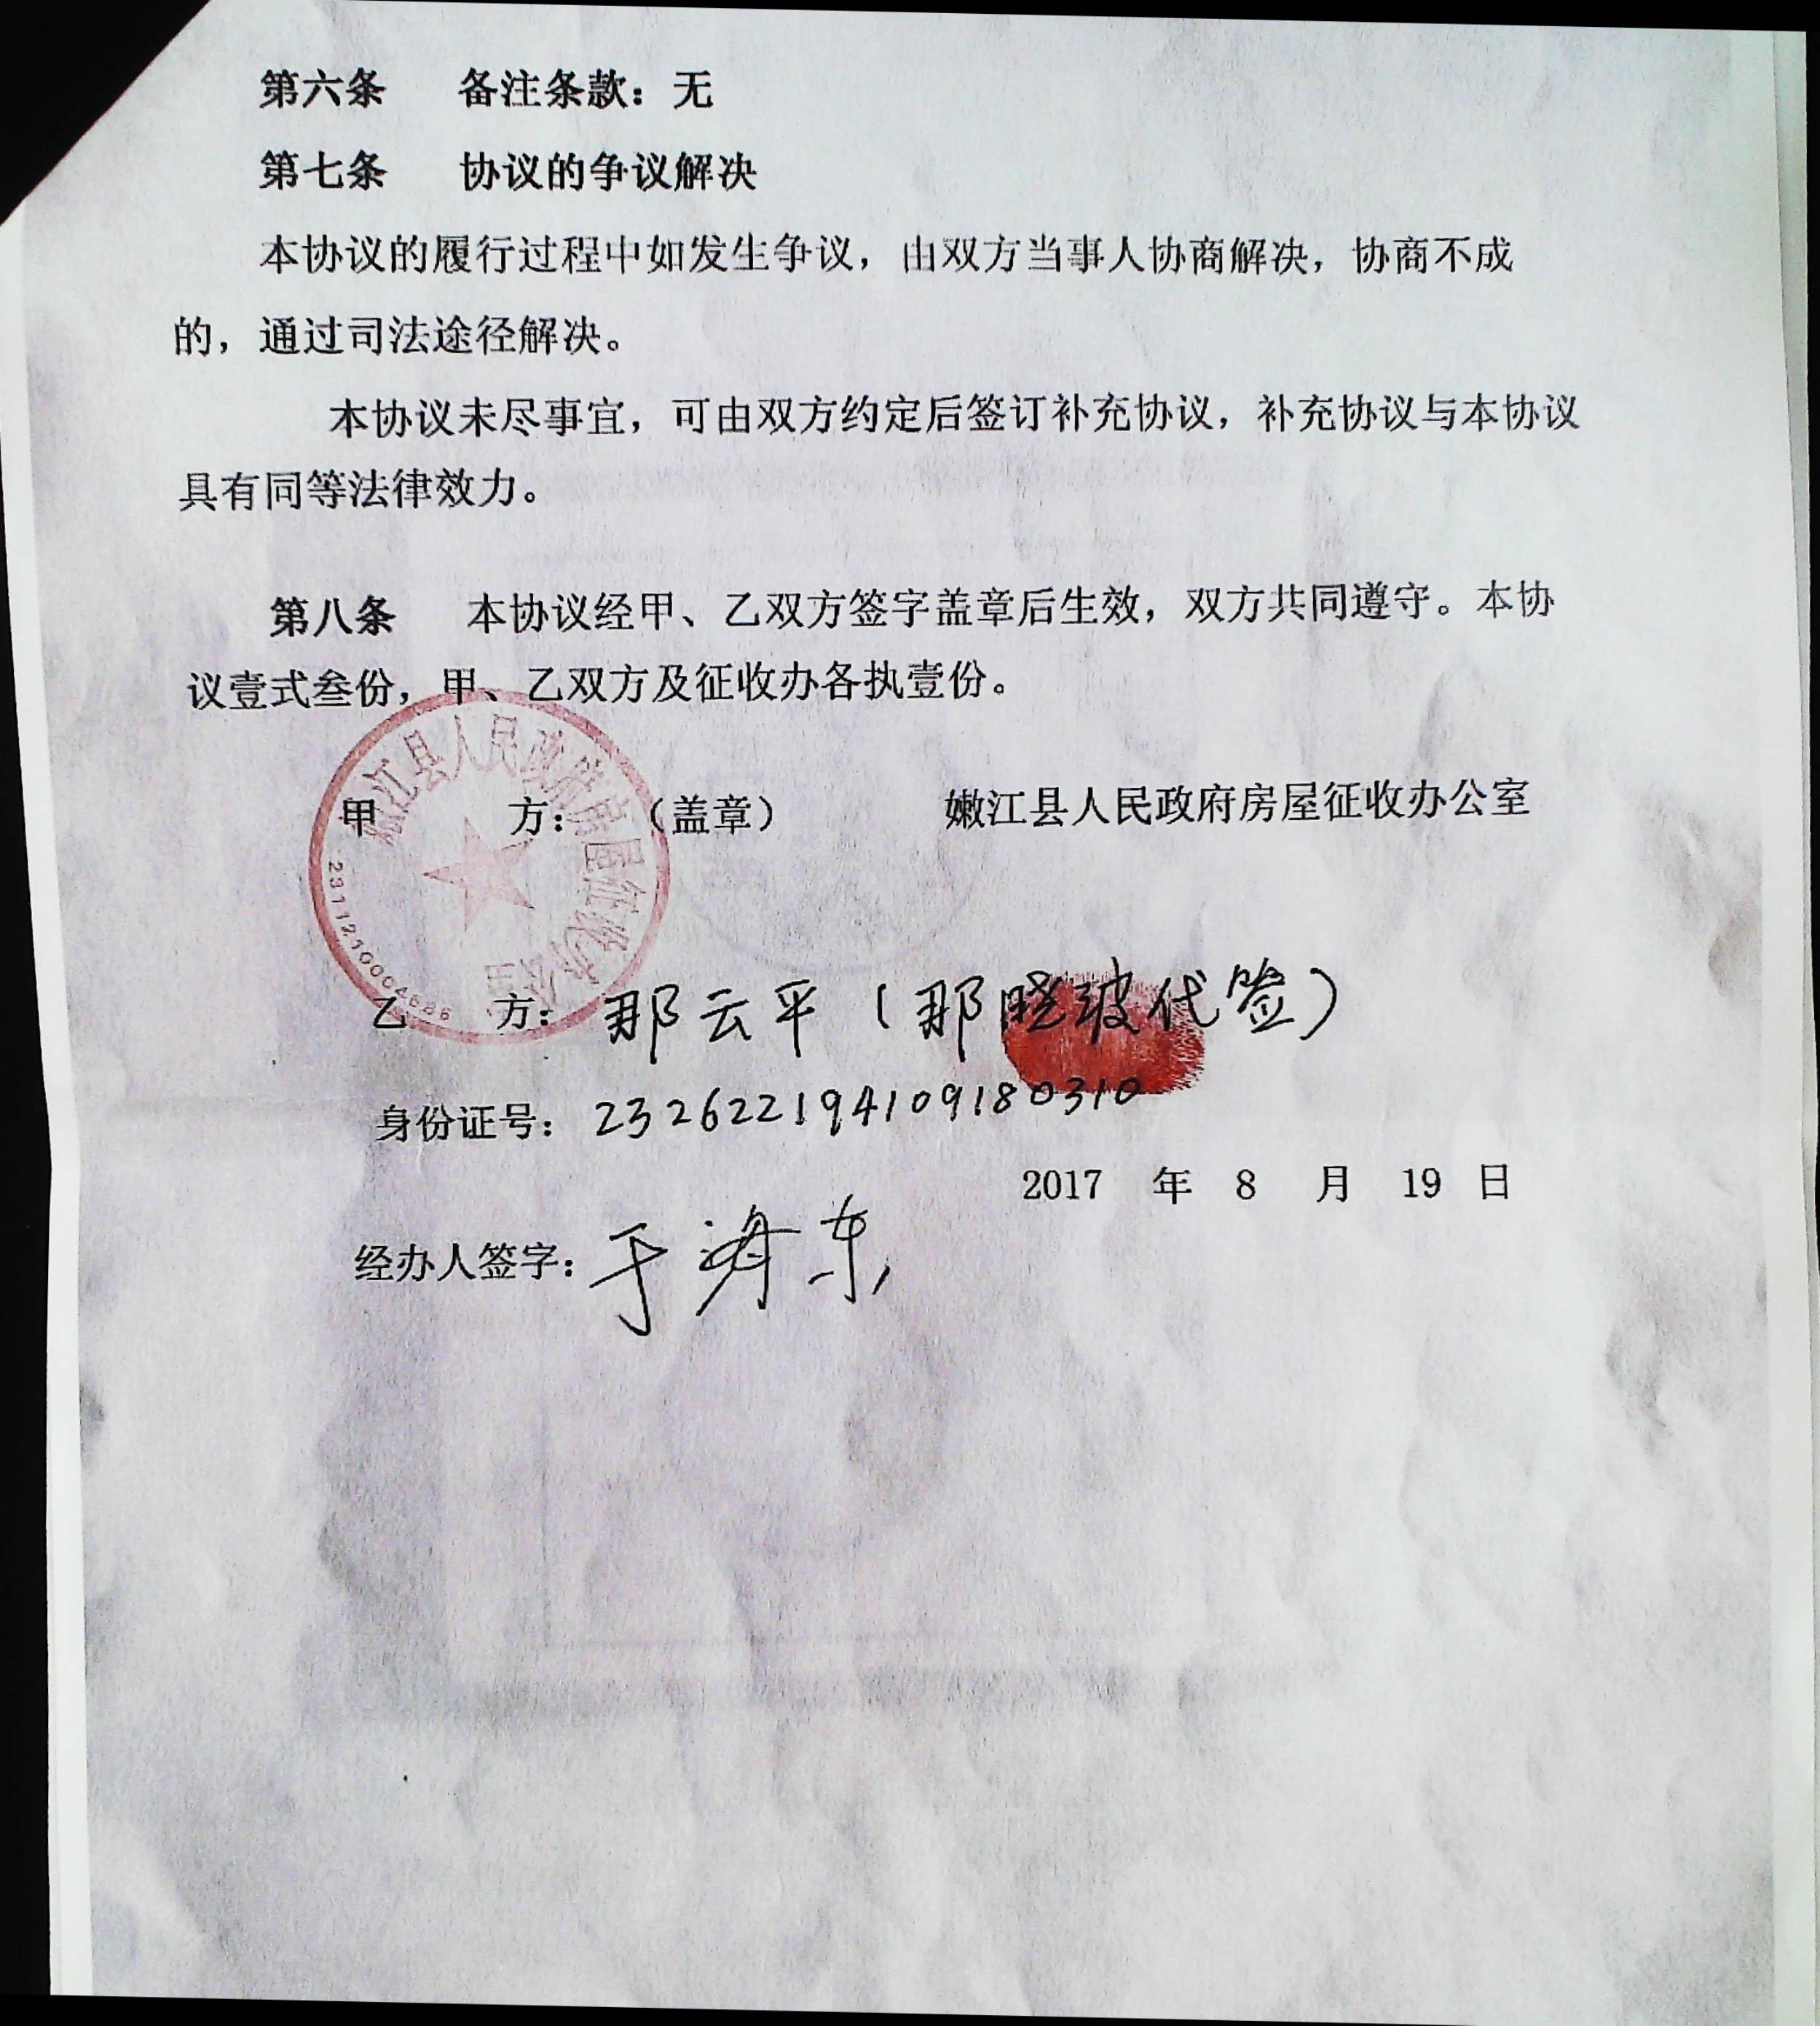 第六条 备注条款：无
第七条 协议的争议解决
本协议的履行过程中如发生争议，由双方当事人协商解决，协商不成
的，通过司法途径解决。
本协议未尽事宜，可由双方约定后签订补充协议，补充协议与本协议
具有同等法律效力。
第八条 本协议经甲、乙双方签字盖章后生效，双方共同遵守。本协
议壹式叁份，甲、乙双方及征收办各执壹份。
嫩江县人民政府房屋征收办公室
甲 方：（盖章） 嫩江县人民政府房屋征收办公室
2311210004686
乙 方：那云平（那晓波代签）
身份证号：232622194109180310
2017 年 8 月 19 日
经办人签字：于海东